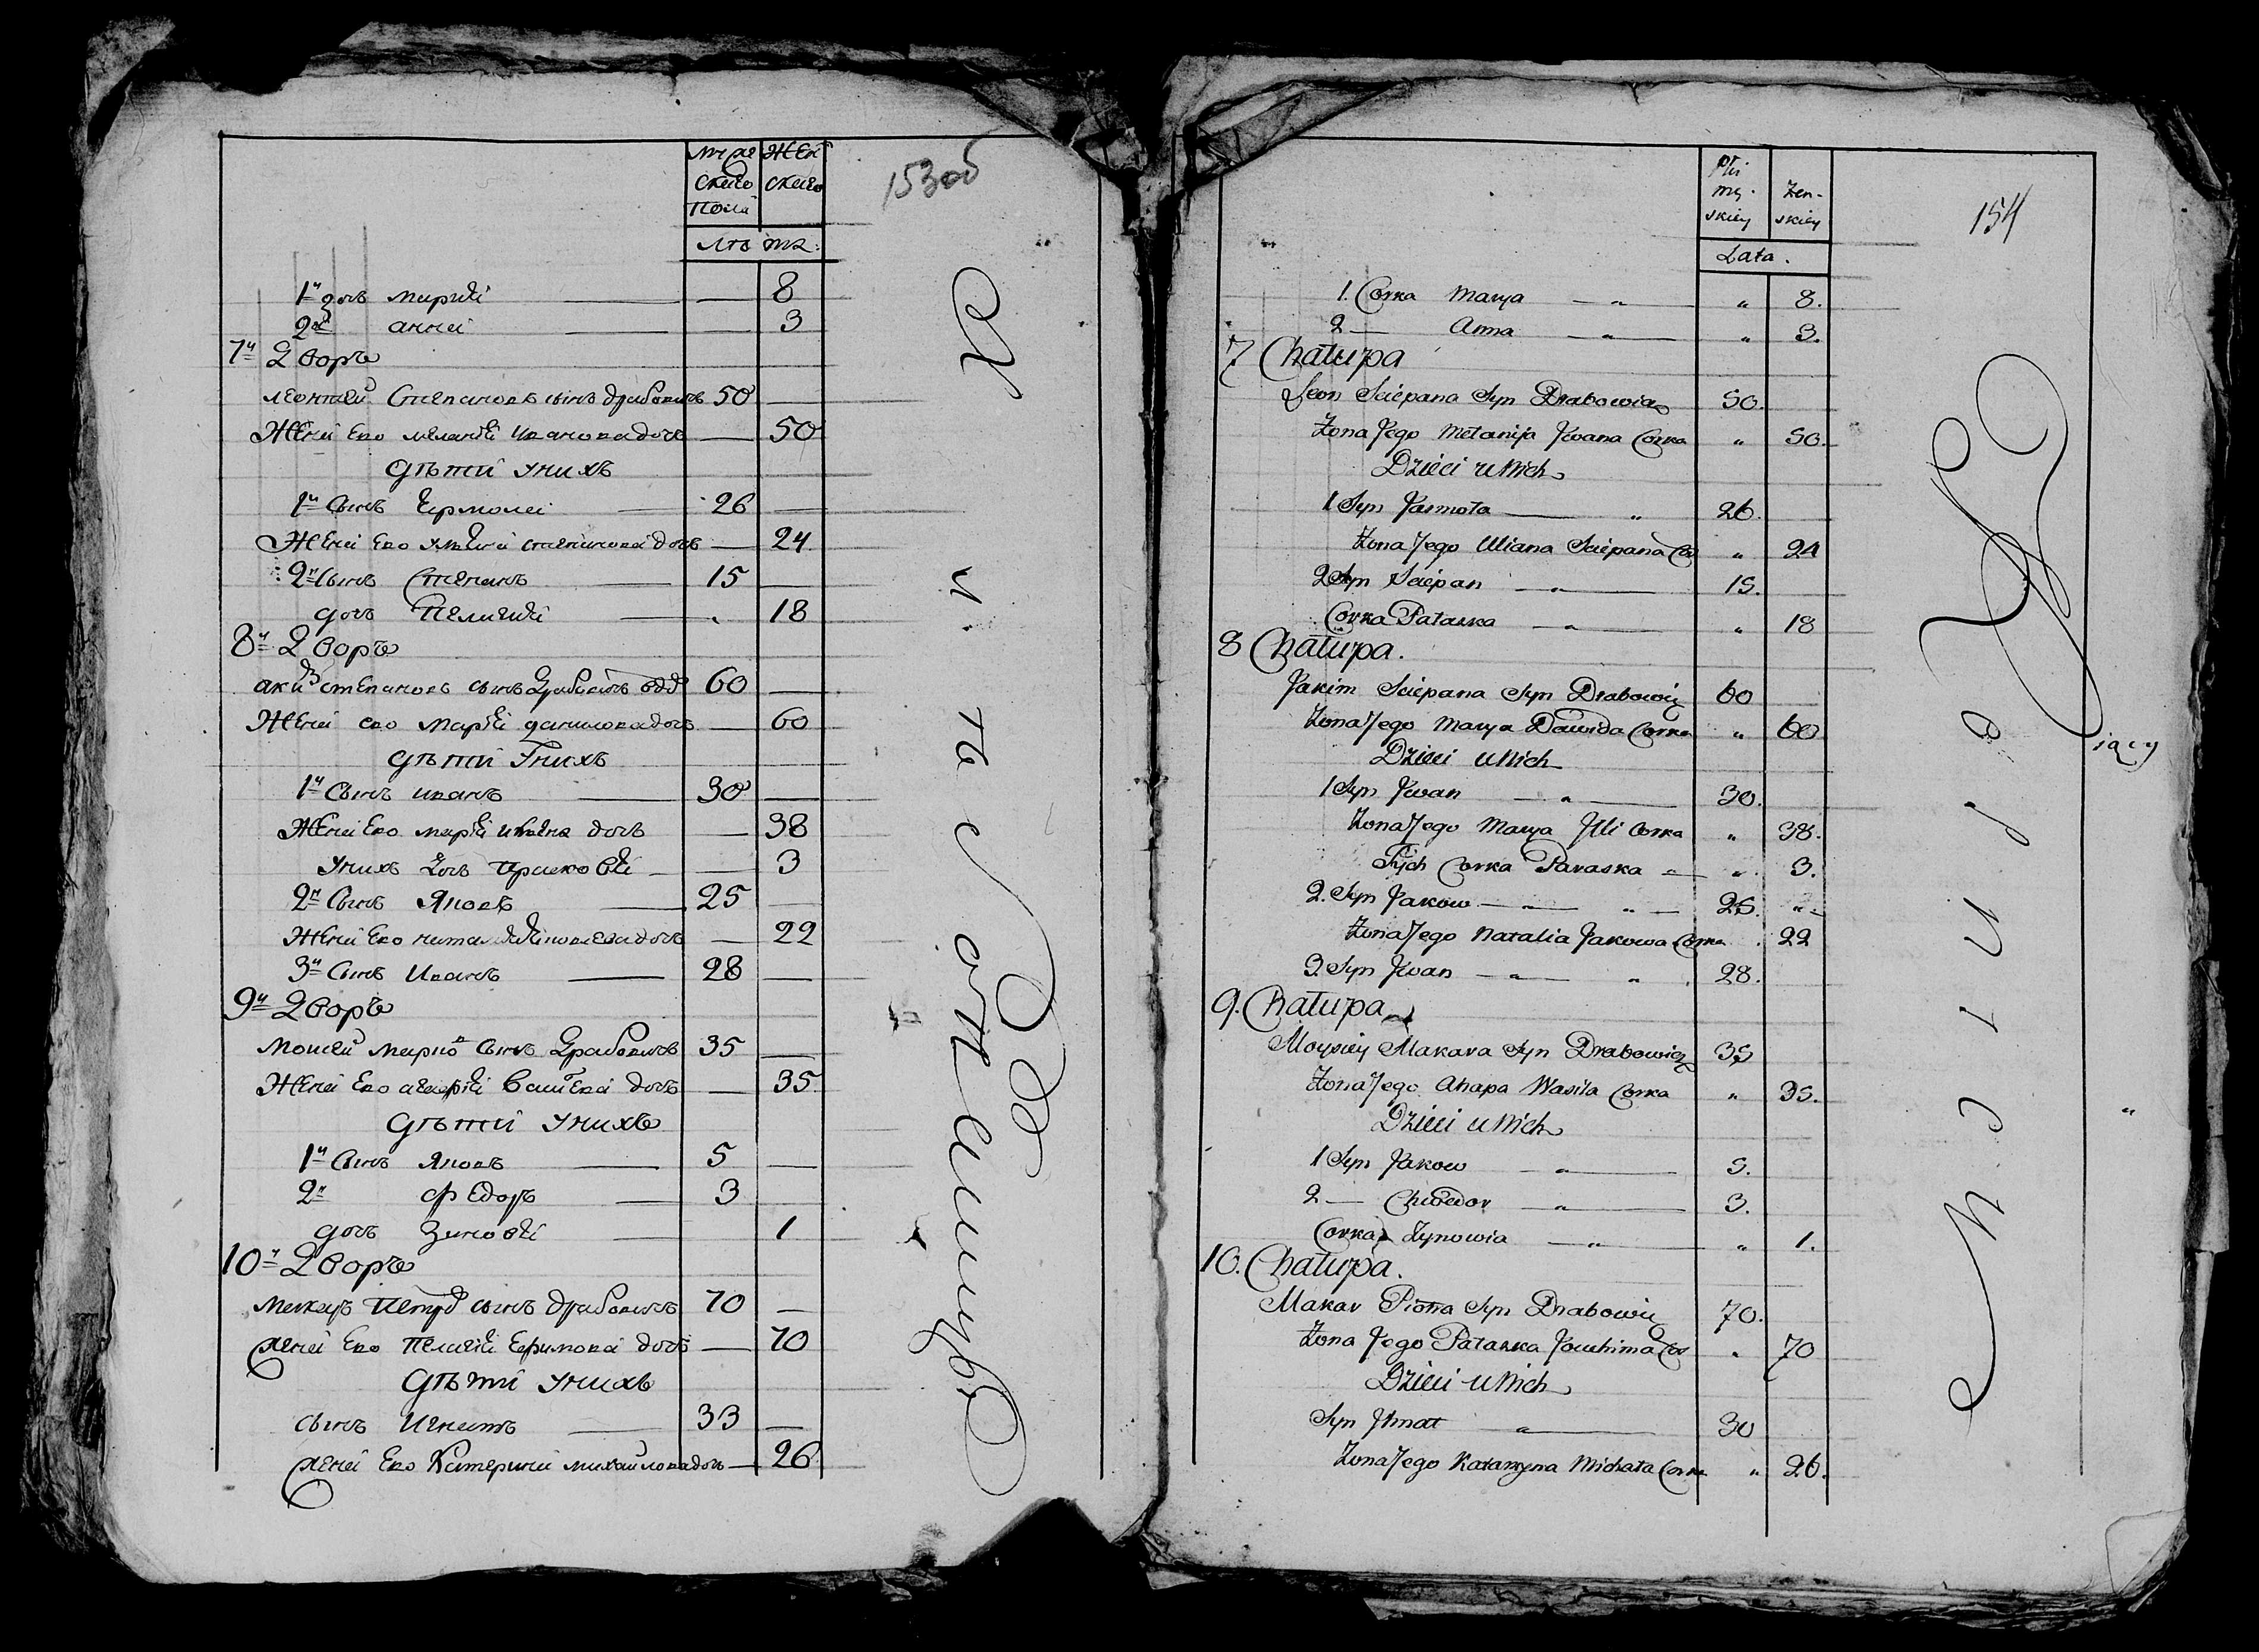 153об
Муже Жен
скаго скаго
пола
лѣта:
1я дочь мариѣ — 8
2я анна — 3
7й Дворъ
леонтей Степановъ сынъ драбовичъ 50 —
Жена Его меланѣ Ивановадочь — 50
дѣти унихъ
1й Сынъ Ермола — 26 —
Жена Его улѣяна степанова дочь — 24
2й Сынъ Степанъ — 15 —
дочь Пелагиѣ — 18
8й Дворъ
степановъ сынъ Драбовичъ 60 —
Жена его Марѣ даниловадочь — 60
дѣти Унихъ
1й Сынъ иванъ — 30 —
Жена Его марѣ дочь — 38
Унихъ Дочь Прасковѣ — 3
2й Сынъ Яковъ — 25 —
Жена Его дочь — 22
3й Сынъ Иванъ — 28 —
9й Дворъ
Моисей сынъ Драбовичъ 35 —
Жена Его дочь — 35
дѣти Унихъ
1й Сынъ Яковъ — 5 —
2й Федоръ — 3
дочь Зиновѣ — 1
10й Дворъ
макаръ Петровъ сынъ драбовичъ 70 —
жена Его Пелагѣ Ефимова дочь — 70
дѣти Унихъ
сынъ Игнатъ — 33 —
жена Его Катерина михайловадочь — 26
154
Płci
mę- Żen-
skiey skiey
Lata.
1. Corka Marya — „ — „ 8.
2 — Anna — „ — „ 3.
7 Chałupa
Leon Sciepana Syn Drabowicz 50.
Żona Jego Mełanija Jwana Corka „ 50.
Dzieci u Nich
1 Syn Jarmoła — „ 26.
Żona Jego Uliana Sciepana Cor „ 24
2 Syn Sciepan — „ — 15.
Corka Pałaska — „ — „ 18
8 Chałupa.
Jakim Sciepana Syn Drabowicz 60
Żona Jego Marya Dawida Corka „ 60
Dzieci u Nich
1 Syn Jwan — „ — 30.
Żona Jego Marya Jlli Corka „ 38.
Tych Corka Paraska „ — „ 3.
2. Syn Jakow — „ — „ — 25. „
Żona Jego Natalia Jakowa Corka „ 22
3. Syn Jwan — „ — „ 28.
9. Chałupa
Moysiey Makara Syn Drabowicz 35
Żona Jego Ahapa Wasila Corka „ 35.
Dzieci u Nich
1 Syn Jakow — „ — 5.
2 — Chwedor — „ — 3.
Corka Zynowia — „ — „ 1.
10. Chałupa.
Makar Piotra Syn Drabowicz 70.
Żona Jego Pałaska Jouchima Cor „ 70
Dzieci u Nich
Syn Jhnat — „ — 30
Żona Jego Katarzyna Michała Corka „ 26.